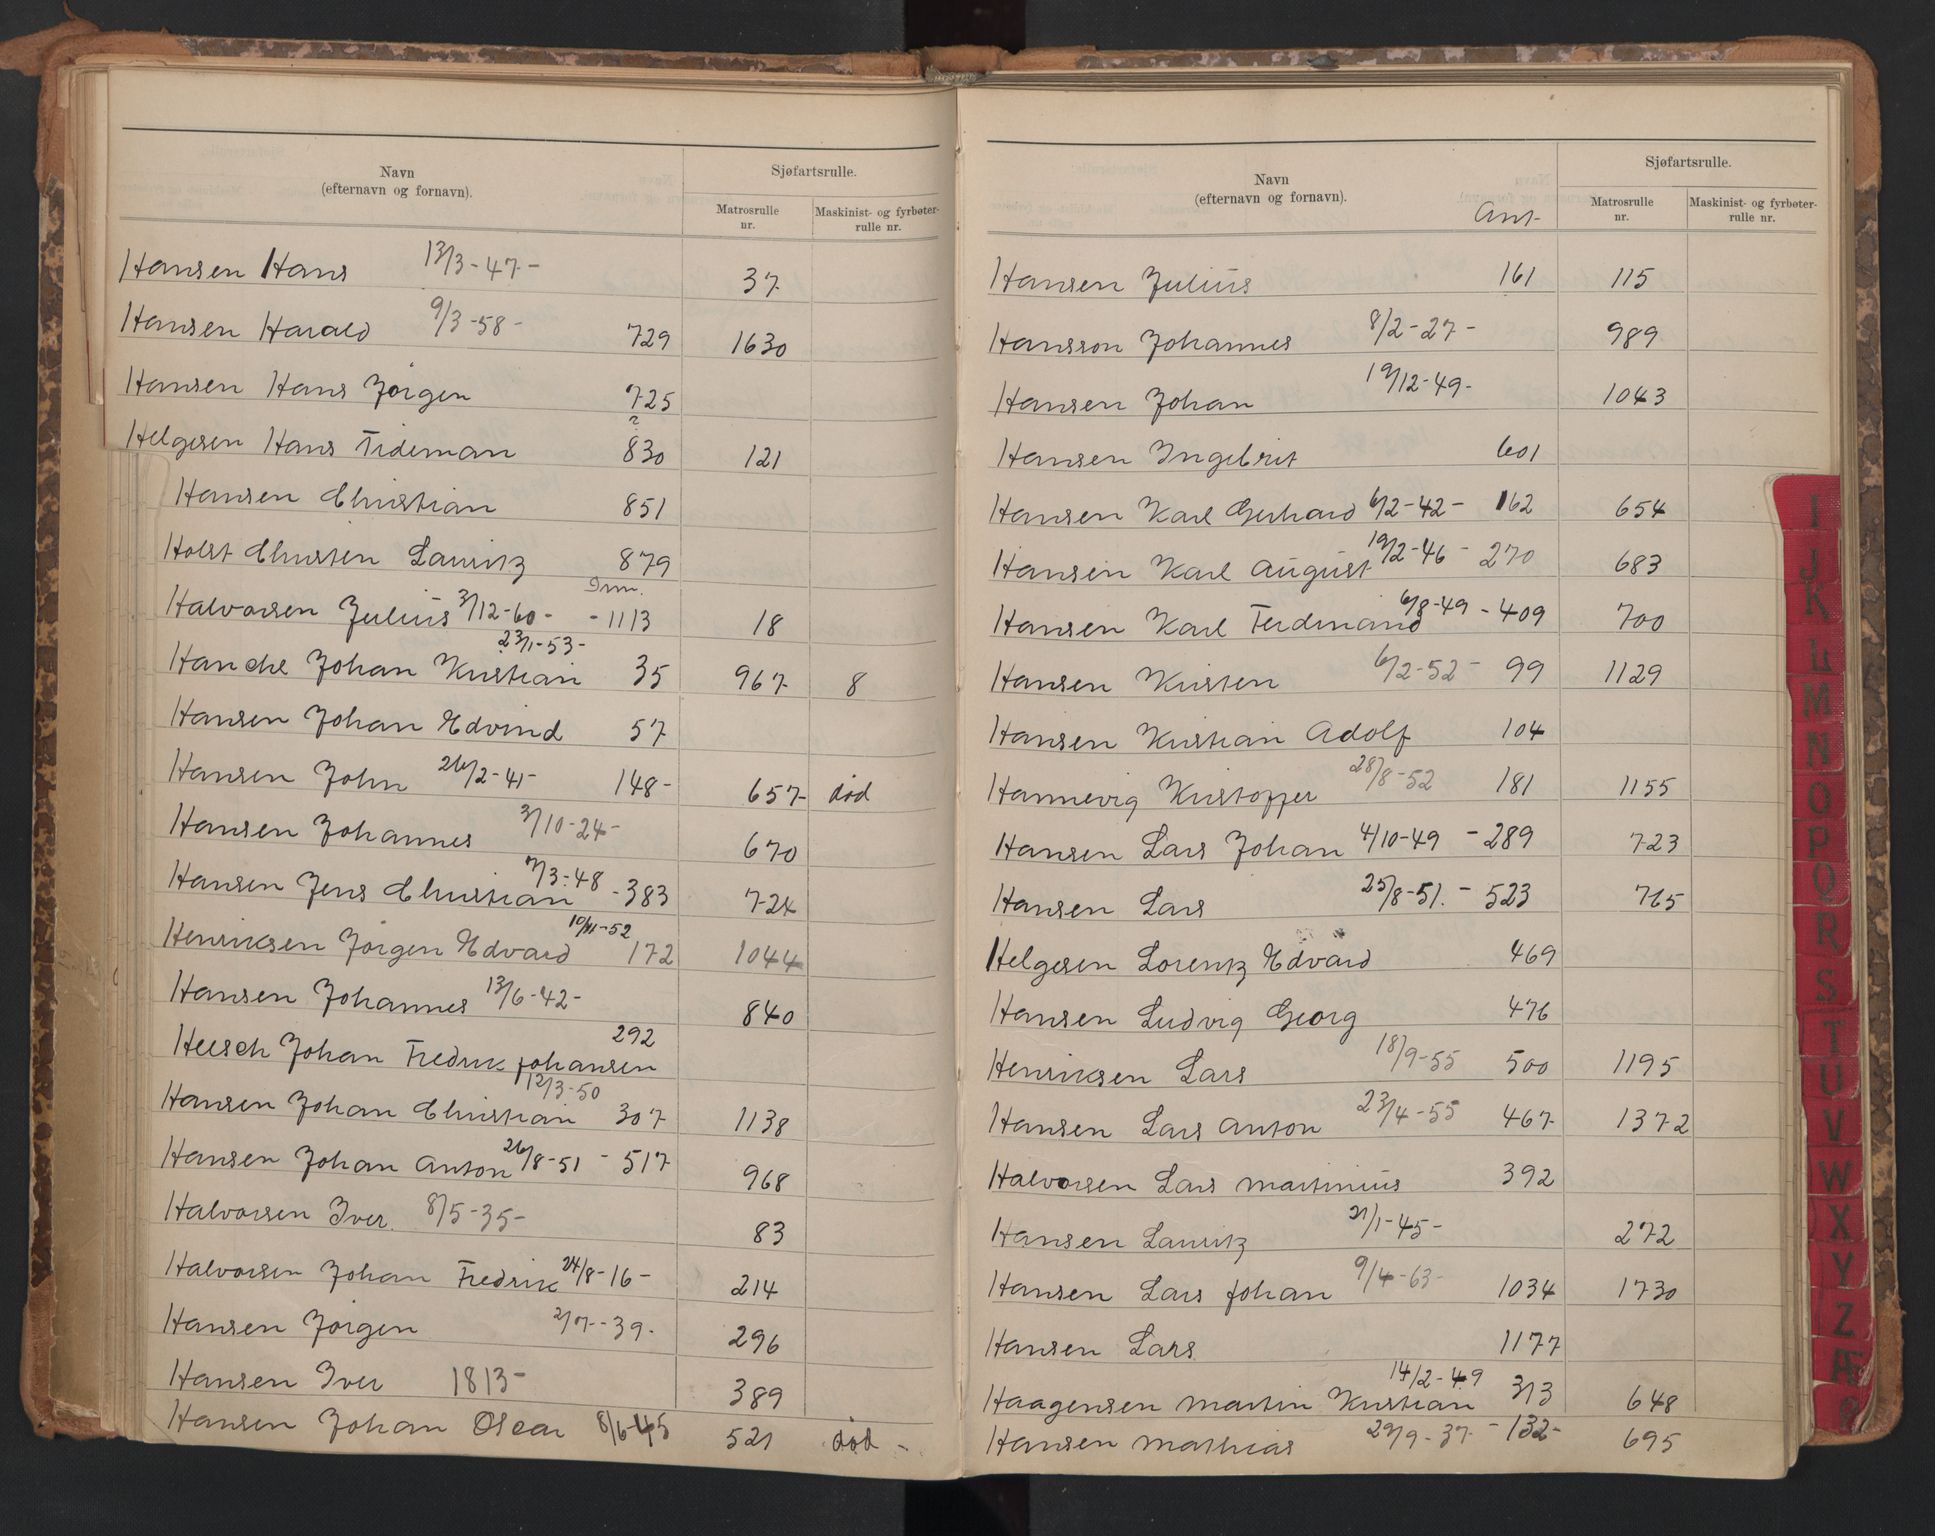 Navn
(efternavn og fornavn).
Sjøfartsrulle.
Matrosrulle
nr.
Maskinist- og fyrbøter-
rulle nr.
Hansen Hans 13/3-47- 37
Hansen Harald 9/3-58- 729 1630
Hansen Hans Jørgen 725
Helgesen Hans Tideman 830 121
Hansen Christian 851
Holst Christen Lauritz 879
Inn.
Halvorsen Julius 3/12-60- -1113 18
Hanche Johan Kristian 23/1-53- 35 967 8
Hansen Johan Edvind 57
Hansen John 26/2-41- 148- 657- død
Hansen Johannes 3/10-24- 670
Hansen Jens Christian 7/3-48 -383 724
Henriksen Jørgen Edvard 10/11-52 172 1044
Hansen Johannes 13/6-42- 840
Heesch Johan Fredrik Johansen 292
Hansen Johan Christian 12/3-50 307 1138
Hansen Johan Anton 26/8-51 - 517 968
Halvorsen Iver. 8/5-35- 83
Halvorsen Johan Fredrik 24/8-16- 214
Hansen Jørgen 2/7-39- 296
Hansen Iver 1813- 389
Hansen Johan Oscar 8/6-45 521 død -
Navn
(efternavn og fornavn).
Ant-
Sjøfartsrulle.
Matrosrulle
nr.
Maskinist- og fyrbøter-
rulle nr.
Hansen Julius 161 115
Hansson Johannes 8/2-27- 989
Hansen Johan 19/12-49- 1043
Hansen Ingebrit 601
Hansen Karl Gerhard 6/2-42- 162 654
Hansen Karl August 19/2-46 - 270 683
Hansen Karl Ferdinand 6/8-49 - 409 700
Hansen Kristen 6/2-52- 99 1129
Hansen Kristian Adolf 104
Hannevig Kristoffer 28/8-52 181 1155
Hansen Lars Johan 4/10-49 - 289 723
Hansen Lars 25/8-51. - 523 765
Helgesen Lorentz Edvard 469
Hansen Ludvig Georg 476
Henriksen Lars 18/9-55 500 1195
Hansen Lars Anton 23/4-55 467 1372
Halvorsen Lars Martinius 392
Hansen Lauritz 21/1-45- 272
Hansen Lars Johan 9/4-63- 1034 1730
Hansen Lars 1177
Haagensen Martin Kristian 14/2-49 313 648
Hansen Mathias 29/9-37- - 132- 695
I
J
K
L
M
N
O
P
Q
R
S
T
U
V
W
X
Y
Z
Æ
Ø